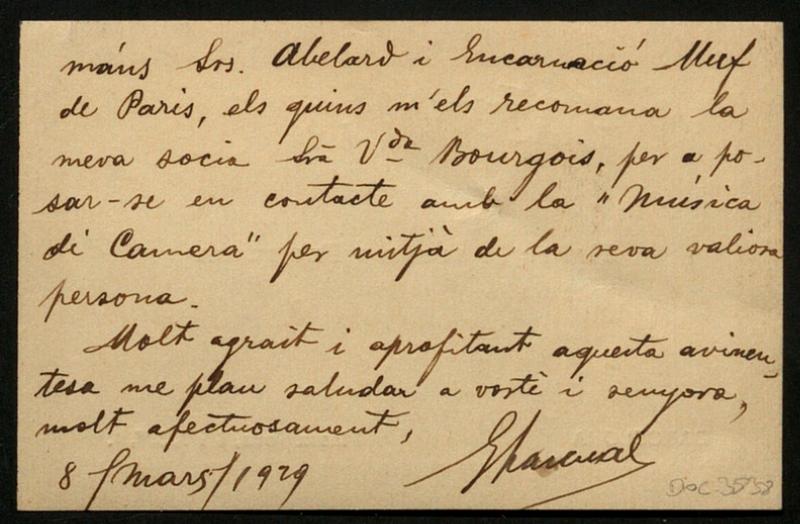 máns Srs. Abelard i Encarnació Muf
de Paris, els quins m'els recomana la
meva socia Srā Vda Bourgois, per a po-
sar-se en contacte amb la "Música
di Camera" per mitjà de la seva valiosa
persona.
Molt agrait i aprofitant aquesta avinen-
tesa me plau saludar a vostè i senyora,
molt afectuosament,
8/Mars/1929